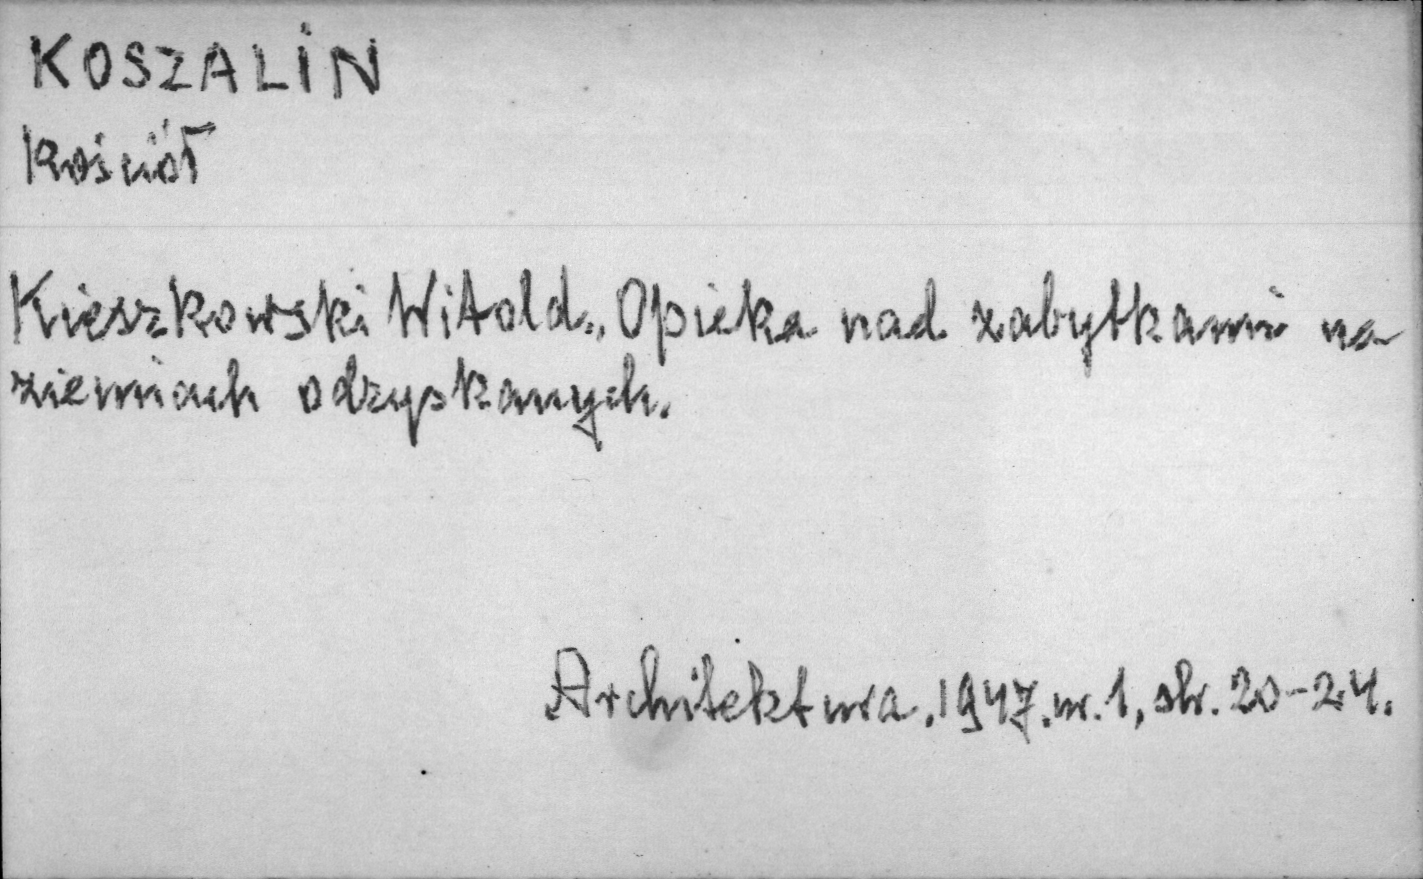 KOSZALIN
Kościół
Kieszkowski Witold., Opieka nad zabytkami na
ziemiach odzyskanych.
Architektura. 1947. nr. 1, str. 20-24.